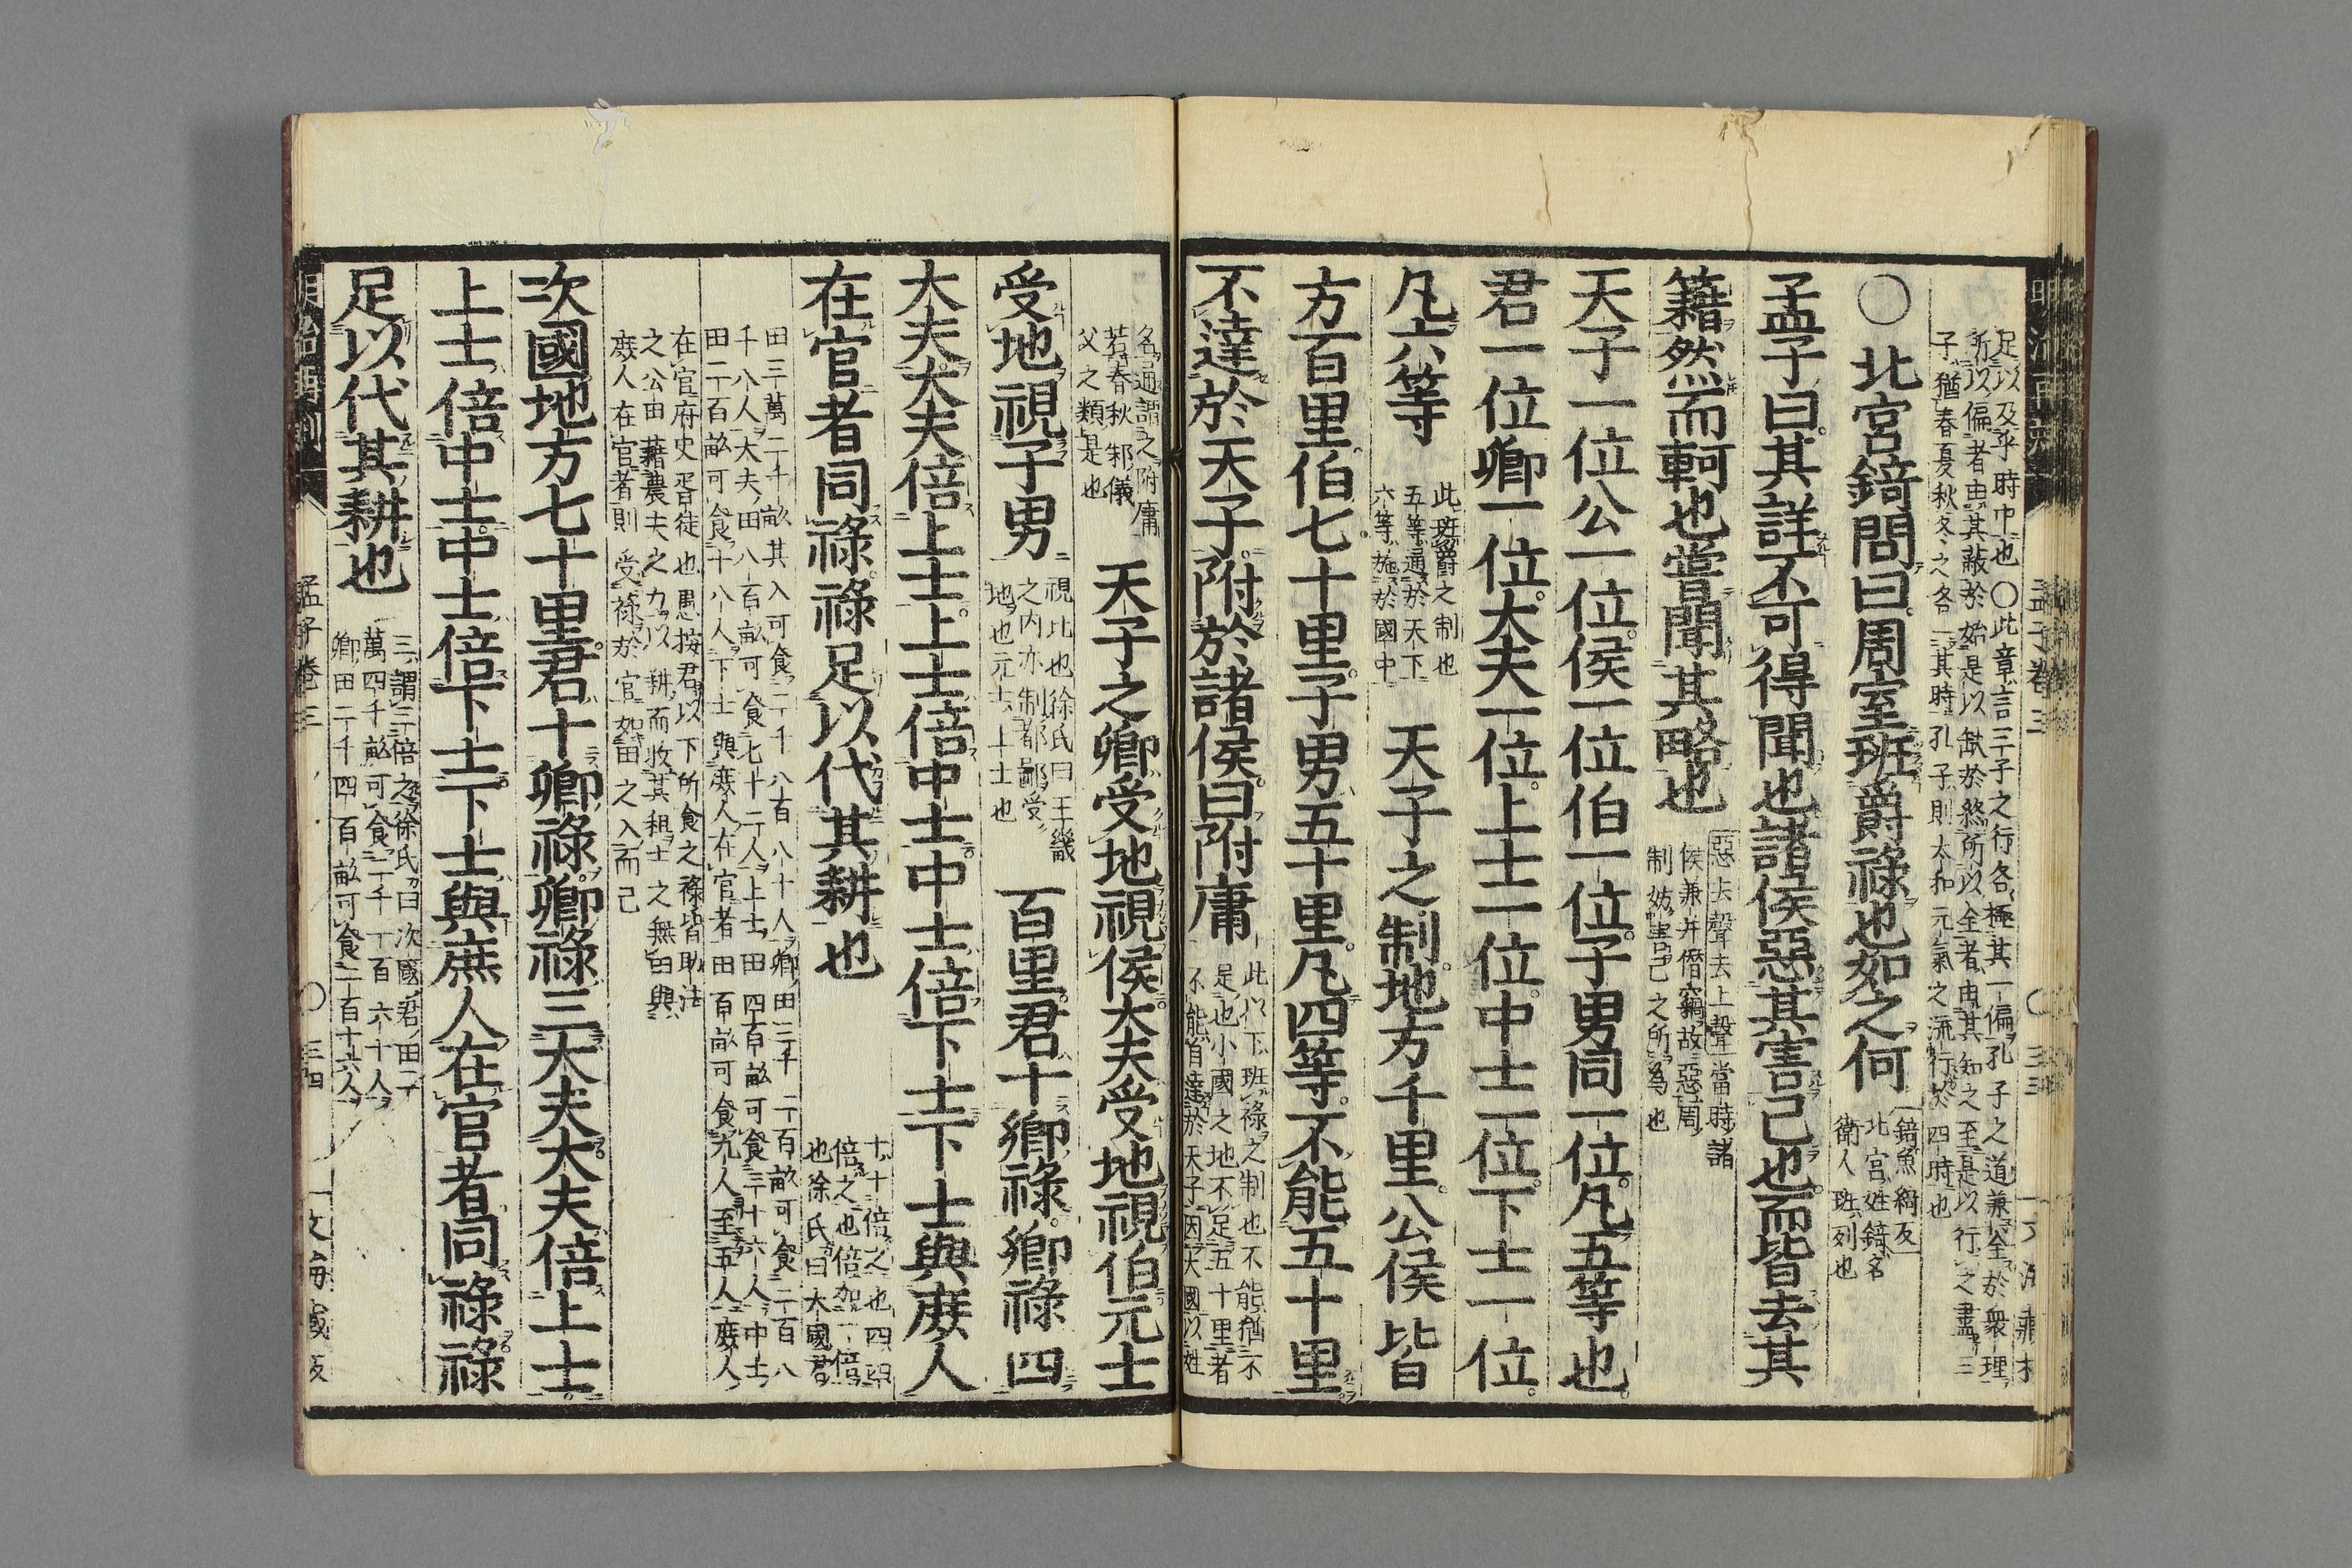 足以及乎時中也〇此章言三子之行各極其一偏孔子之道兼全於衆理
所以偏者由其蔽於始是以缺於終所以全者由其知之至是以行之盡三
子猶春夏秋冬之各一其時孔子則太和元氣之流行於四時也
〇北宮錡問曰周室班爵祿也如之何
錡魚綺反
北宮姓錡名
衛人班列也
孟子曰其詳不可得聞也諸侯惡其害己也而皆去其
籍然而軻也嘗聞其略也
惡去聲去上聲當時諸
侯兼并僭竊故惡周
制妨害己之所為也
天子一位公一位侯一位伯一位子男同一位凡五等也
君一位卿一位大夫一位上士一位中士一位下士一位
凡六等
此班爵之制也
五等通於天下
六等施於國中
天子之制地方千里公侯皆
方百里伯七十里子男五十里凡四等不能五十里
不達於天子附於諸侯曰附庸
此以下班祿之制也不能猶不
足也小國之地不足五十里者
不能自達於天子因大國以姓
名通謂之附庸
若春秋邾儀
父之類是也
天子之卿受地視侯大夫受地視伯元士
受地視子男
視比也徐氏曰王畿
之內亦制都鄙受
地也元士上士也
百里君十卿祿卿祿四
大夫大夫倍上士上士倍中士中士倍下士下士與庶人
在官者同祿祿足以代其耕也
十十倍之也四四
倍之也倍加一倍
也徐氏曰大國君
田三萬二千畝其入可食二千八百八十人卿田三千二百畝可食二百八
十八人大夫田八百畝可食七十二人上士田四百畝可食三十六人中士
田二百畝可食十八人下士與庶人在官者田百畝可食九人至五人庶人
在官府史胥徒也愚按君以下所食之祿皆助法
之公田藉農夫之力以耕而收其租士之無田與
庶人在官者則受祿於官如田之入而已
次國地方七十里君十卿祿卿祿三大夫大夫倍上士
上士倍中士中士倍下士下士與庶人在官者同祿祿
足以代其耕也
三謂三倍之徐氏曰次國君田二
萬四千畝可食二千一百六十人
卿田二千四百畝可食二百十六人
孟子卷三
〇三四